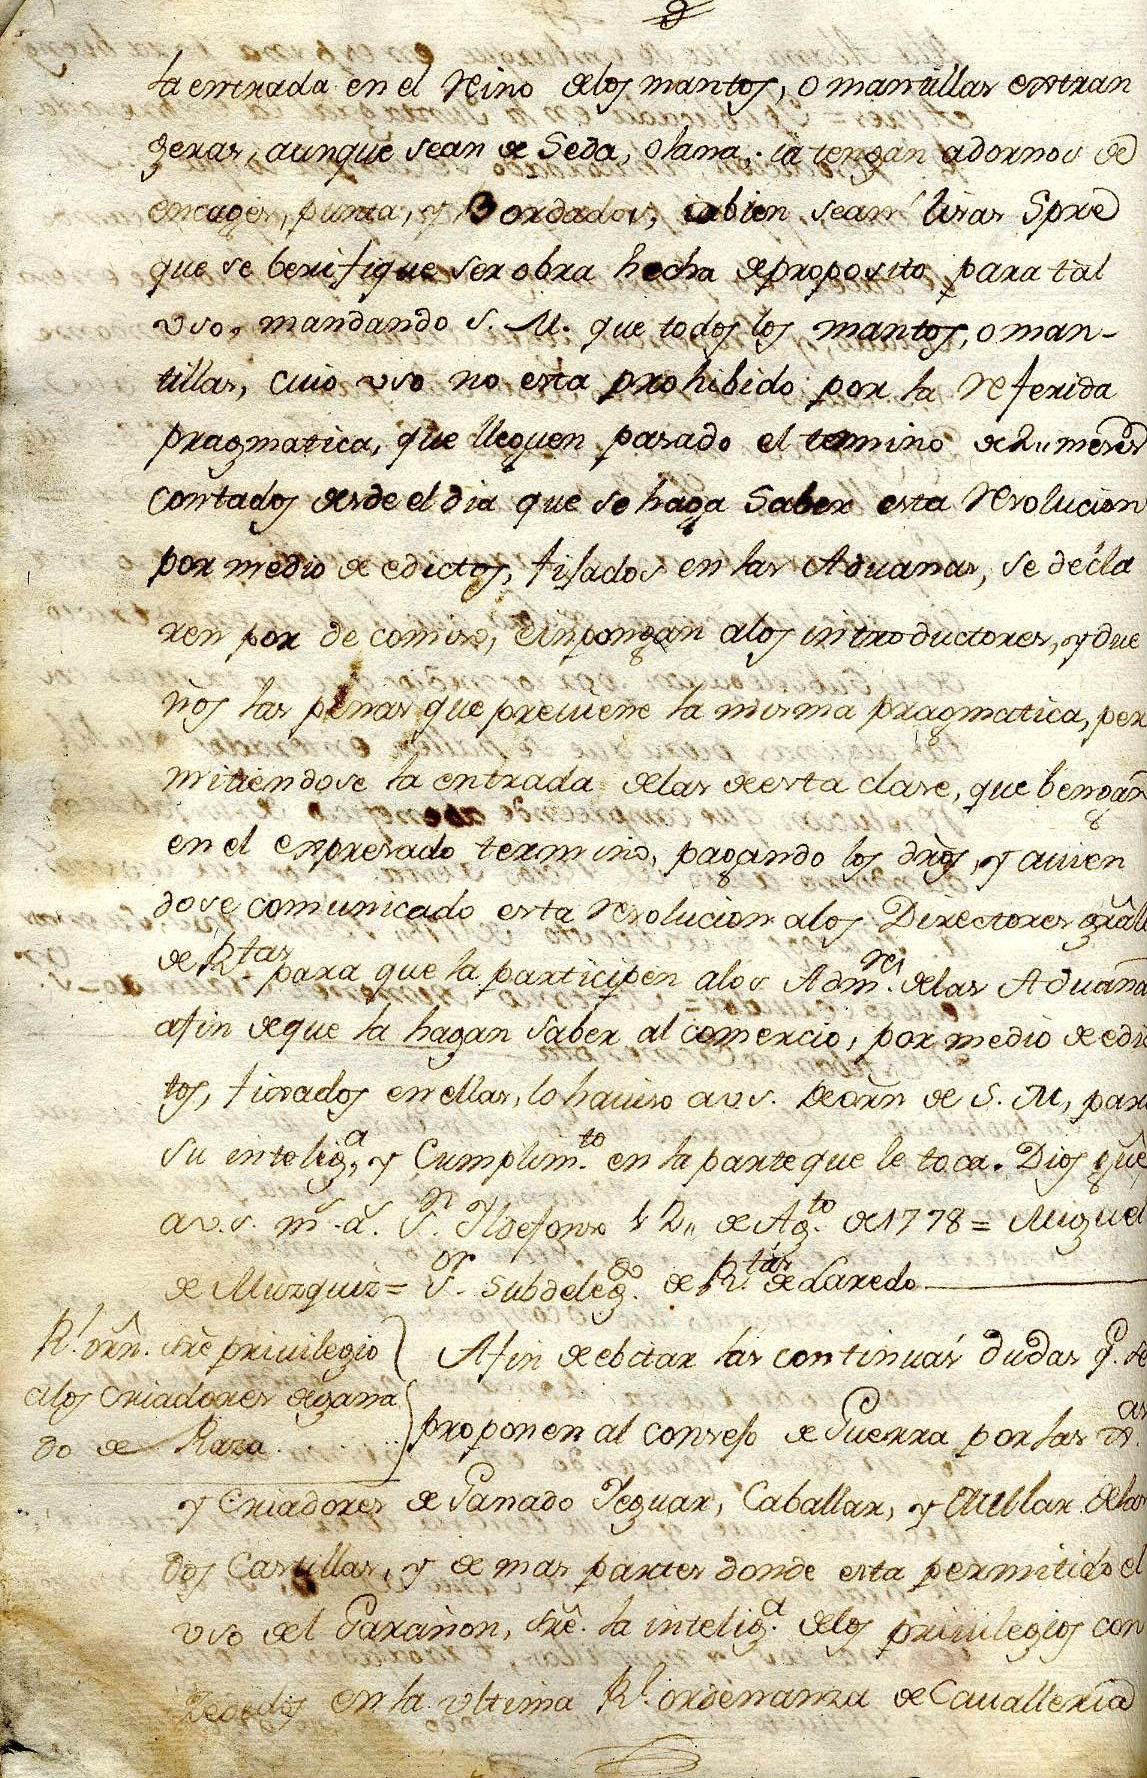 la entrada en el Reino delos mantos, o mantillas extran
geras, aunque sean de Seda, olana, ia tengan adornos de
encages, punta, y Bordados, iabien sean lisas Spre
que se berifique ser obra hecha deproposito para tal
uso, mandando S. M. que todos los mantos, o man-
tillas, cuio uso no esta prohibido por la referida
pragmatica, que lleguen pasado el termino de 2,, meses
contados desde el dia que se haga Saber esta resolucion
por medio de edictos, fijados en las Aduanas, se decla
ren por de comiso, eimpongan alos introductores, y due
ños las penas que previene la misma pragmatica, per
mitiendose la entrada delas deesta clase, que bengan
en el expresado termino, pagando los dros, y avien
dose comunicado esta resolucion alos Directores grales
de Rtas para que la participen alos Admres. delas Aduanas
afin deque la hagan saber al comercio, por medio de edic
tos, fixados en ellas, lo haviso a v. s. de orn de S. M, para
su inteliga, y Cumplimto. en la parteque le toca. Dios gue
a v. s. ms. as. Sn. Ildefonso 12,, de Agto. de 1778 = Miguel
de Muzquiz = Sor. Subdelegdo. de Rtas de Laredo
Rl. orn. sre privilegio
alos Criadores degana
do de Raza
Afin deebitar las continuas dudas q. se
proponen al consejo de Guerra por las
y Criadores de Ganado Yeguar, Caballar, y Mullar delas
dos Castillas, y de mas partes donde esta permitido el
uso del Garañon, sre. la inteliga. delos privilegios con
zededos en la ultima Rl. ordenanza de Cavalleria